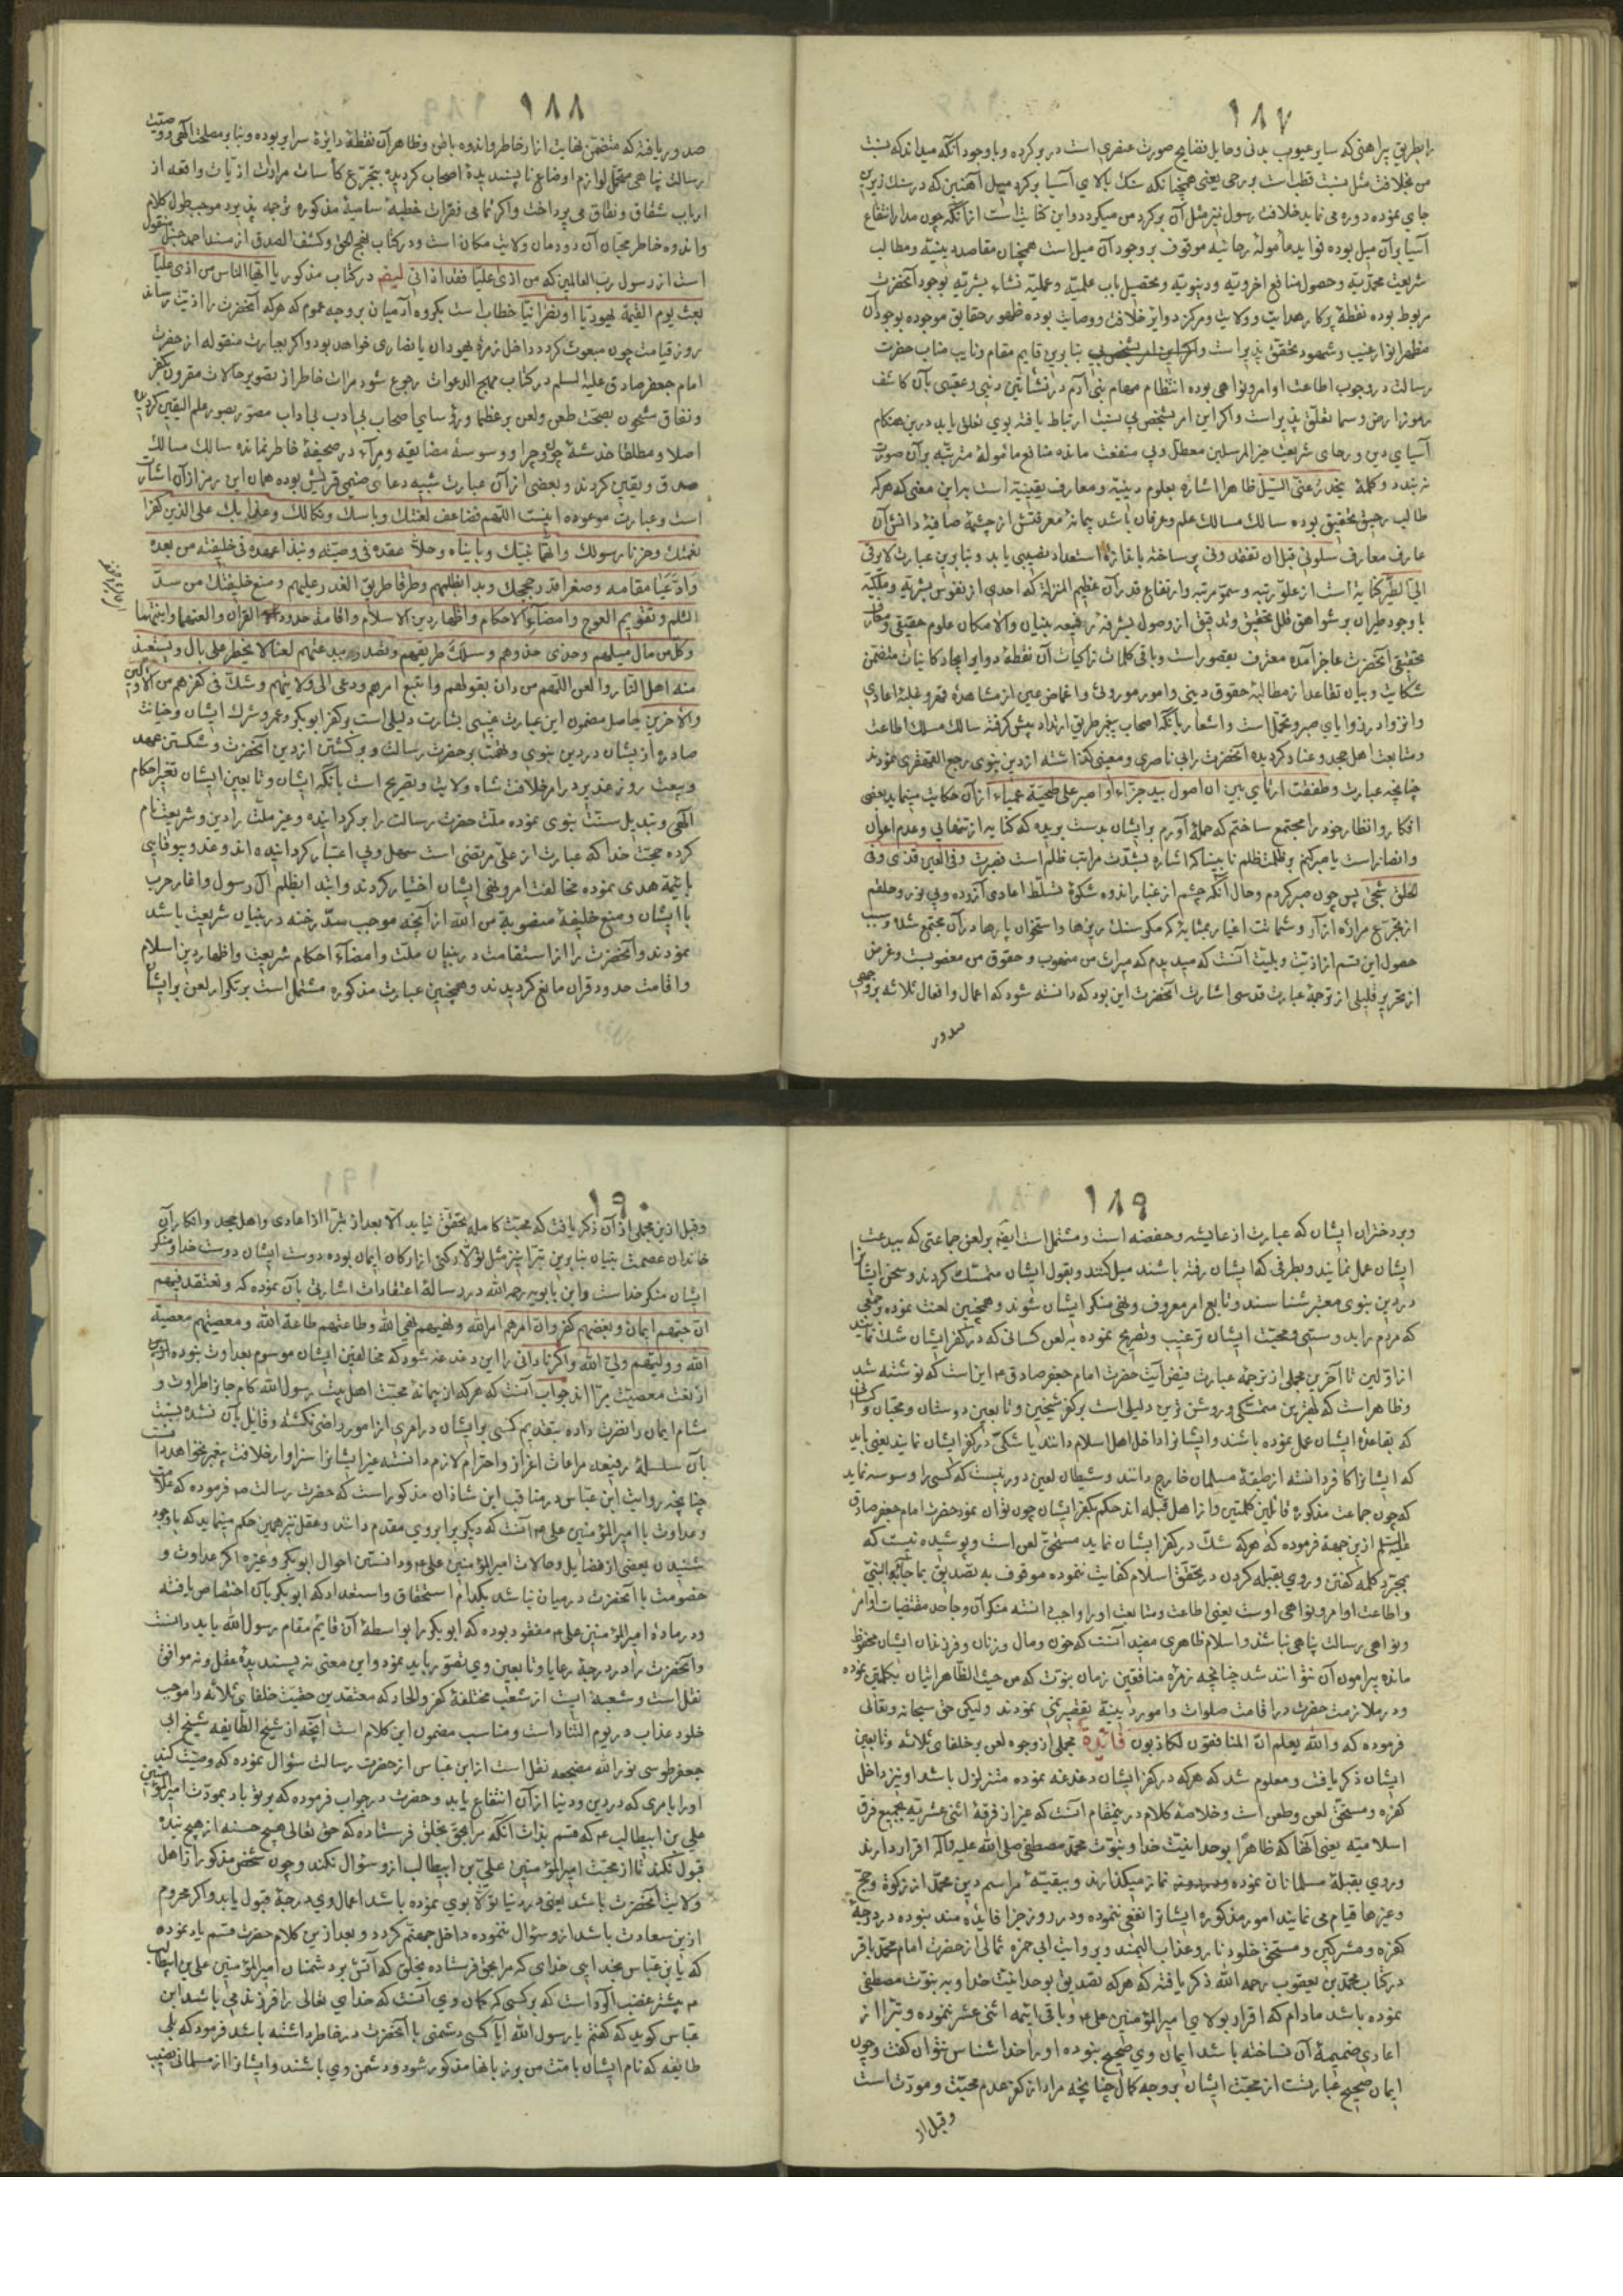 ١٨٧
را بطریق پیراهنی که ساتر عیوب بدنی وحایل فضایح صورت عنصری است در بر کرده و با وجود آنکه میداند که نسبت
من بخلافت مثل نسبت قطب است برحی یعنی همچنانکه سنک بالای آسیا بر کرد میل آهنین که در سنک زیرین
جای نموده دوره می نماید خلافت رسول نیز مثل آن بر کرد من میکردد و این کنایت است از آنکه چون مدار انتفاع
آسیا بر آن میل بوده فواید مأمولۀ رحائیه موقوف بر وجود آن میل است همچنان مقاصد دینیه ومطالب
شریعت محمدیه وحصول منافع اخرویه ودنیویه وتحصیل باب علمیه وعملیه نشاء بشریه بوجود آنحضرت
مربوط بوده نقطۀ پرکار هدایت وولایت ومرکز دوایر خلافت ووصایت بوده ظهور حقایق موجوده بوجود آن
مظهر انوار غیب وشهود تحقق پذیر است بنا برین قایم مقام ونایب مناب حضرت
رسالت در وجوب اطاعت اوامر ونواهی بوده انتظام مهام بنی آدم در نشأتین دنیی وعقبی بآن کاشف
رموز ارض وسما تعلق پذیر است واکر این امر بشخص بی نسبت ارتباط یافته بوی تعلق یابد درین هنکام
آسیای دین ورحای شریعت خیر المرسلین معطل وبی منفعت مانده منافع مأمولۀ مترتبه بر آن صورت
نه بندد وکلمۀ ینحدر عنی السیل ظاهرا اشاره بعلوم دینیه ومعارف یقینیه است براین معنی که هرکه
طالب رحیق تحقیق بوده سالک مسالک علم وعرفان باشد پیمانۀ معرفتش از چشمۀ صافیۀ دانش آن
عارف معارف سلونی قبل ان تفقدونی پر ساخته باندازۀ استعداد نصیبی یابد وبنا برین عبارت لا یرقی
الی الطیر کنایة است از علو رتبه وسمو مرتبه وارتفاع قدر آن عظیم المنزلة که احدی از نفوس بشریه وملکیه
با وجود طیران بر شواهق قلل تحقیق وتدقیق از وصول بشرفۀ رفیعه بنیان والا مکان علوم حقیقی ومعارف
تحقیقی آنحضرت عاجز آمده معترف بقصور است وباقی کلمات زاکیات آن نقطۀ دوایر ایجاد کاینات متضمن
شکایت وبیان تقاعد از مطالبۀ حقوق دینی وامور موروثی واغماض عین از مشاهدۀ قهر وغلبۀ اعادی
وانزوا در زوایای صبر وتحمل است واشعار بآنکه اصحاب پیغمبر طریق ارتداد پیش کرفته سالک مسلک اطاعت
ومتابعت اهل جحد وعناد کردیده آنحضرت را بی ناصری ومعینی کذاشته از دین نبوی رجع القهقری نمودند
چنانچه عبارت وطفقت ارتأی بین ان اصول بید جزاء او اصبر علی طخیة عمیاء از آن حکایت مینماید یعنی
افکار وانظار خود را مجتمع ساختم که حمله آورم بر ایشان بدست بریده که کنایه از تنهایی وعدم اعوان
وانصار است یا صبر کنم بر ظلمت ظلم نابینا که اشاره بشدت مراتب ظلم است فصبرت وفی العین قذی وفی
الحلق شجی پس چون صبر کردم وحال آنکه چشم از غبار اندوه شکوۀ تسلط اعادی آزرده وبی نور وحلقم
از تجرع مرارۀ ازار وشماتت اغیار بمثابۀ که مکر سنک ریزها واستخوان پارها در آن مجتمع شده وسبب
حصول این قسم از اذیت وبلیت آنست که میدیدم که میراث من منهوب وحقوق من مغصوبست وغرض
از تحریر قلیلی از ترجمۀ عبارت قدسی اشارت آنحضرت این بود که دانسته شود که اعمال وافعال ثلاثه بر وجهی
صدور
١٨٨
صدور یافته که متضمن نهایت ازار خاطر واندوه باطن وظاهر آن نقطۀ دایرۀ سرایر بوده وبنا بر مصلحت آلهی ووصیت
رسالت پناهی متحمل لوازم اوضاع ناپسندیدۀ اصحاب کردیده بتجرع کأسات مرارت اذیات واقعه از
ارباب شقاق ونفاق می پرداخت واکر تمامی فقرات خطبۀ سامیۀ مذکوره ترجمه پذیرد موجب طول کلام
واندوه خاطر محبان آن دودمان ولایت مکان است ودر کتاب نهج الحق وکشف الصدق از مسند احمد حنبل منقول
است از رسول رب العالمین که من اذی علیا فقد اذانی ایضم در کتاب مذکور یا ایها الناس من اذی علیا
بعث یوم القیمة یهودیا او نصرانیا خطاب است بکروه آدمیان بر وجه عموم که هرکه آنحضرت را اذیت رساند
روز قیامت چون مبعوث کردد داخل زمرۀ یهودان یا نصاری خواهد بود واکر بعبارت منقوله از حضرت
امام جعفر صادق علیه السلم در کتاب مهج الدعوات رجوع شود مرات خاطر از تصویر حالات مقرون بکفر
ونفاق مشحون بصحت طعن ولعن بر عظما ورؤسای اصحاب بی ادب بی اداب مصور بصور علم الیقین کردیده
اصلا ومطلقا خدشۀ چون وچرا ووسوسۀ مضایقه ومرآء در صحیفۀ خاطر نمانده سالک مسالک
صدق ویقین کردند وبعضی از آن عبارت شبیه دعای صنمی قریش بوده همان این رمز از آن اشارت
است وعبارت موعوده اینست اللهم فضاعف لعنتک وباسک ونکالک وعذابک علی الذین کفرا
نعمتک وخونا رسولک واتهما نبیک وبایناه وحلا عقده فی وصیته ونبذا عهده فی خلیفته من بعده
وادعیا مقامه وصغرا قدر حججک وبدا بظلمهم وطرقا طریق الغدر علیهم ومنع خلیفتک من سد
الثلم وتقویم العوج وامضاء الاحکام واظهار دین الاسلام واقامة حدود القران والعنهما وابنتیهما
وکل من مال میلهم وحذی حذوهم وسلک طریقهم وتصدر ببدعتهم لعنا لا یخطر علی بال ویستعیذ
منه اهل النار والعن اللهم من دان بقولهم واتبع امرهم ودعی الی ولایتهم وشک فی کفرهم من الاولین
والاخرین یحاصل مضمون این عبارت غیبی بشارت دلیلی است بر کفر ابوبکر وعمر وشرک ایشان وخیانت
صادره از یشان در دین نبوی وتهمت بر حضرت رسالت وبر کشتن از دین آنحضرت وشکستن عهد
وبیعت روز غدیر در امر خلافت شاه ولایت وبتصریح است بآنکه ایشان وتابعین ایشان تغیر احکام
آلهی وتبدیل سنت نبوی نموده ملت حضرت رسالت را بر کردانیده وغیر ملت را دین وشریعت نام
کرده حجت خدا که عبارت از علی مرتضی است سهل وبی اعتبار کردانیده اند وغدر وبیوفایی
با ئمۀ هدی نموده مخالفت امر ونهی ایشان اختیار کردند وابتدا بظلم آل رسول واغاز حرب
با ایشان ومنع خلیفۀ منصوبة من الله از آنچه موجب سد رخنه در بنیان شریعت باشد
نمودند وآنحضرت را از استقامت در بنیان ملت وامضآء احکام شریعت واظهار دین اسلام
واقامت حدود قران مانع کردیدند وهمچنین عبارت مذکوره مشتمل است بر تکرار لعن بر ایشان
١٨٩
وبر دختران ایشان که عبارت از عایشه وحفصه است ومشتمل است ایضم بر لعن جماعتی که ببدعت
ایشان عمل نمایند وبطرفی که ایشان رفته باشند میل کنند وبقول ایشان متمسک کردند وسخن ایشانرا
در دین نبوی معتبر شناسند وتابع امر معروف ونهی منکر ایشان شوند وهمچنین لعنت نموده برجمعی
که مردم را بدوستی ومحبت ایشان ترغیب وتصریح نموده به لعن کسانی که در کفر ایشان شک نمایند
از اولین تا آخرین مجملی از ترجمۀ عبارت فیض آیت حضرت امام جعفر صادق ع این است که نوشته شد
وظاهر است که بهترین متمسکی وروشن ترین دلیلی است بر کفر شیخین وتابعین دوستان ومحبان وکسانی
که بقاعدۀ ایشان عمل نموده باشند وایشانرا داخل اهل اسلام دانند یا شکی در کفر ایشان نمایند یعنی باید
که ایشانرا کافر دانسته از طبقۀ مسلمان خارج دانند وشیطان لعین دور نیست که کسی را وسوسه نماید
که چون جماعت مذکوره قائلین کلمتین واز اهل قبله اند حکم بکفر ایشان چون توان نمود حضرت امام جعفر صادق
علیه السلم ازین جهة فرموده که هرکه شک در کفر ایشان نماید مستحق لعن است وپوشیده نیست که
بمجرد کلمه کفتن وروی بقبله کردن در تحقق اسلام کفایت ننموده موقوف به تصدیق بما جآء به النبی
واطاعت اوامر ونواهی اوست یعنی اطاعت ومتابعت اورا واجب دانسته منکر آن وجاحد مقتضیات اوامر
ونواهی رسالت پناهی نباشد واسلام ظاهری مفید آنست که خون ومال وزنان وفرزندان ایشان محفوظ
مانده پیرامون آن نتوانند شد چنانچه زمرۀ منافقین زمان نبوت که من حیث الظاهر اتیان بکلمتین نموده
ودر ملازمت حضرت در اقامت صلوات وامور دینیه تقصیر نمی نمودند ولیکن حق سبحانه وتعالی
فرموده که والله یعلم ان المنافقون لکاذبون فائدة مجملی از وجوه لعن بر خلفای ثلاثه وتابعین
ایشان ذکر یافت ومعلوم شد که هرکه در کفر ایشان دغدغه نموده متزلزل باشد او نیز داخل
کفره ومستحق لعن وطعن است وخلاصۀ کلام درینمقام آنست که غیر از فرقۀ اثنی عشریه بجمیع فرق
اسلامیه یعنی آنها که ظاهرا بوحدانیت خدا ونبوت محمد مصطفی صلی الله علیه وآله اقرار دارند
وروی بقبلۀ مسلمانان نموده نماز میکذارند وببقیۀ مراسم دین محمد از زکوة وحج
وغیرهما قیام می نمایند امور مذکوره ایشانرا نفعی ننموده ودر روز جزا فایده مند نبوده در درجۀ
کفره ومشرکین ومستحق خلود نار وعذاب الیمند وبروایت ابی حمزه ثمالی از حضرت امام محمد باقر
در کتاب محمد بن یعقوب رحمه الله ذکر یافته که هرکه تصدیق بوحدانیت خدا وبه نبوت مصطفی
نموده باشد مادام که اقرار بولای امیر المؤمنین علی ع وباقی ایئمه اثنی عشر ننموده وتبرا از
اعادی ضمیمۀ آن نساخته باشد ایمان وی صحیح نبوده اورا خدا شناس نتوان کفت وچون
ایمان صحیح عبارتست از محبت ایشان بر وجه کمال چنانچه مراد از کفر عدم محبت ومودت است
وقبل از
١٩٠
وقبل ازین مجملی از آن ذکر یافت که محبت کامله تحقق نیابد الا بعد از تبرا از اعادی واهل جحد وانکار آن
خاندان عصمت بنیان بنا برین تبرا نیز مثل تولا رکنی از ارکان ایمان بوده دوست ایشان دوست خدا ومنکر
ایشان منکر خداست وابن بابویه رحمه الله در رسالۀ اعتقادات اشارتی بآن نموده که ونعتقد فیهم
ان حبهم ایمان وبغضهم کفر وان امرهم امر الله ونهیهم نهی الله وطاعتهم طاعة الله ومعصیتهم معصیة
الله وولیهم ولی الله واکر نادانی را این دغدغه شود که مخالفین ایشان موسوم بعداوت نبوده
از نعت معصیت مبرا اند جواب آنست که هرکه از پیمانۀ محبت اهل بیت رسول الله کام جانرا طراوت و
مشام ایمان را نضرت داده بتقدیم کسی بر ایشان در امری از امور راضی نکشته وقایل بآن نشده نسبت
بآن سلسلۀ رفیعه مراعات اعزاز واحترام لازم دانسته غیر ایشانرا سزاوار خلافت پیغمبر نخواهد دانست
چنانچه روایت ابن عباس در مناقب ابن شاذان مذکور است که حضرت رسالت ص فرموده که علامت
وعداوت با امیر المؤمنین علی ع آنست که دیکریرا بروی مقدم دانند وعقل نیز همین حکم مینماید که باوجود
شنیدن بعضی از فضایل وحالات امیر المؤمنین علی ع ودانستن احوال ابوبکر وغیره اکر عداوت و
خصومت با آنحضرت در میان نباشد بکدام استحقاق واستعداد که ابوبکر بآن اختصاص یافته
ودر مادۀ امیر المؤمنین علی ع مفقود بوده که ابوبکر را بواسطۀ آن قایم مقام رسول الله باید دانست
وآنحضرت را در درجۀ رعایا وتابعین وی تصور باید نمود واین معنی نه پسندیدۀ عقل ونه موافق
نقل است وشعبۀ ایست از شعب مختلفۀ کفر والحاد که معتقدین حقیت خلفای ثلاثه را موجب
خلود عذاب در یوم التناد است ومناسب مضمون این کلام است آنچه از شیخ الطایفه شیخ ابی
جعفر طوسی نور الله مضجعه نقل است از ابن عباس از حضرت رسالت سؤال نموده که وصیت کنید
اورا بامری که در دین ودنیا از آن انتفاع یابد وحضرت در جواب فرموده که بر تو باد بمودت امیر المؤمنین
علی بن ابیطالب ع که قسم بذات آنکه مرا بحق بخلق فرستاده که حق تعالی هیچ حسنه از هیچ بنده
قبول نکند تا از محبت امیر المؤمنین علی بن ابیطالب ازو سؤال نکند وچون شخص مذکور از اهل
ولایت آنحضرت باشد یعنی در دنیا تولا بوی نموده باشد اعمال وی درجۀ قبول یابد واکر محروم
ازین سعادت باشد ازو سؤال ننموده داخل جهنم کردد وبعد ازین کلام حضرت قسم یاد نموده
که یا بن عباس بخدایی خدای که مرا بحق فرستاده بخلق که آتش بر دشمنان امیر المؤمنین علی بن ابیطالب
ع بیشتر غضب آلود است که بر کسی که کمان وی آنست که خدای تعالی را فرزندی باشد ابن
عباس کوید که کفتم یا رسول الله آیا کسی دشمنی با آنحضرت در خاطر داشته باشد فرمود که بلی
طایفه که نام ایشان بامت من بر زبانها مذکور شود ودشمن وی باشند وایشانرا از مسلمانی نصیب